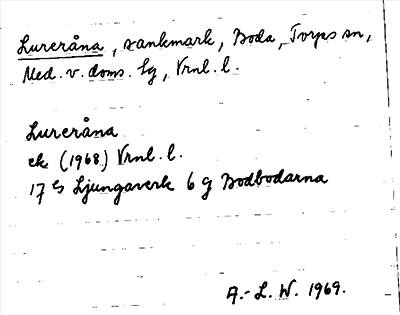 Lureråna, sankmark, Boda, Torps sn,
Med. v. doms. lg, Vrnl. l.
Lureråna
ek (1968) Vrnl. l.
17 G Ljungaverk 6 g Bodbodarna
A.-L. W. 1969.